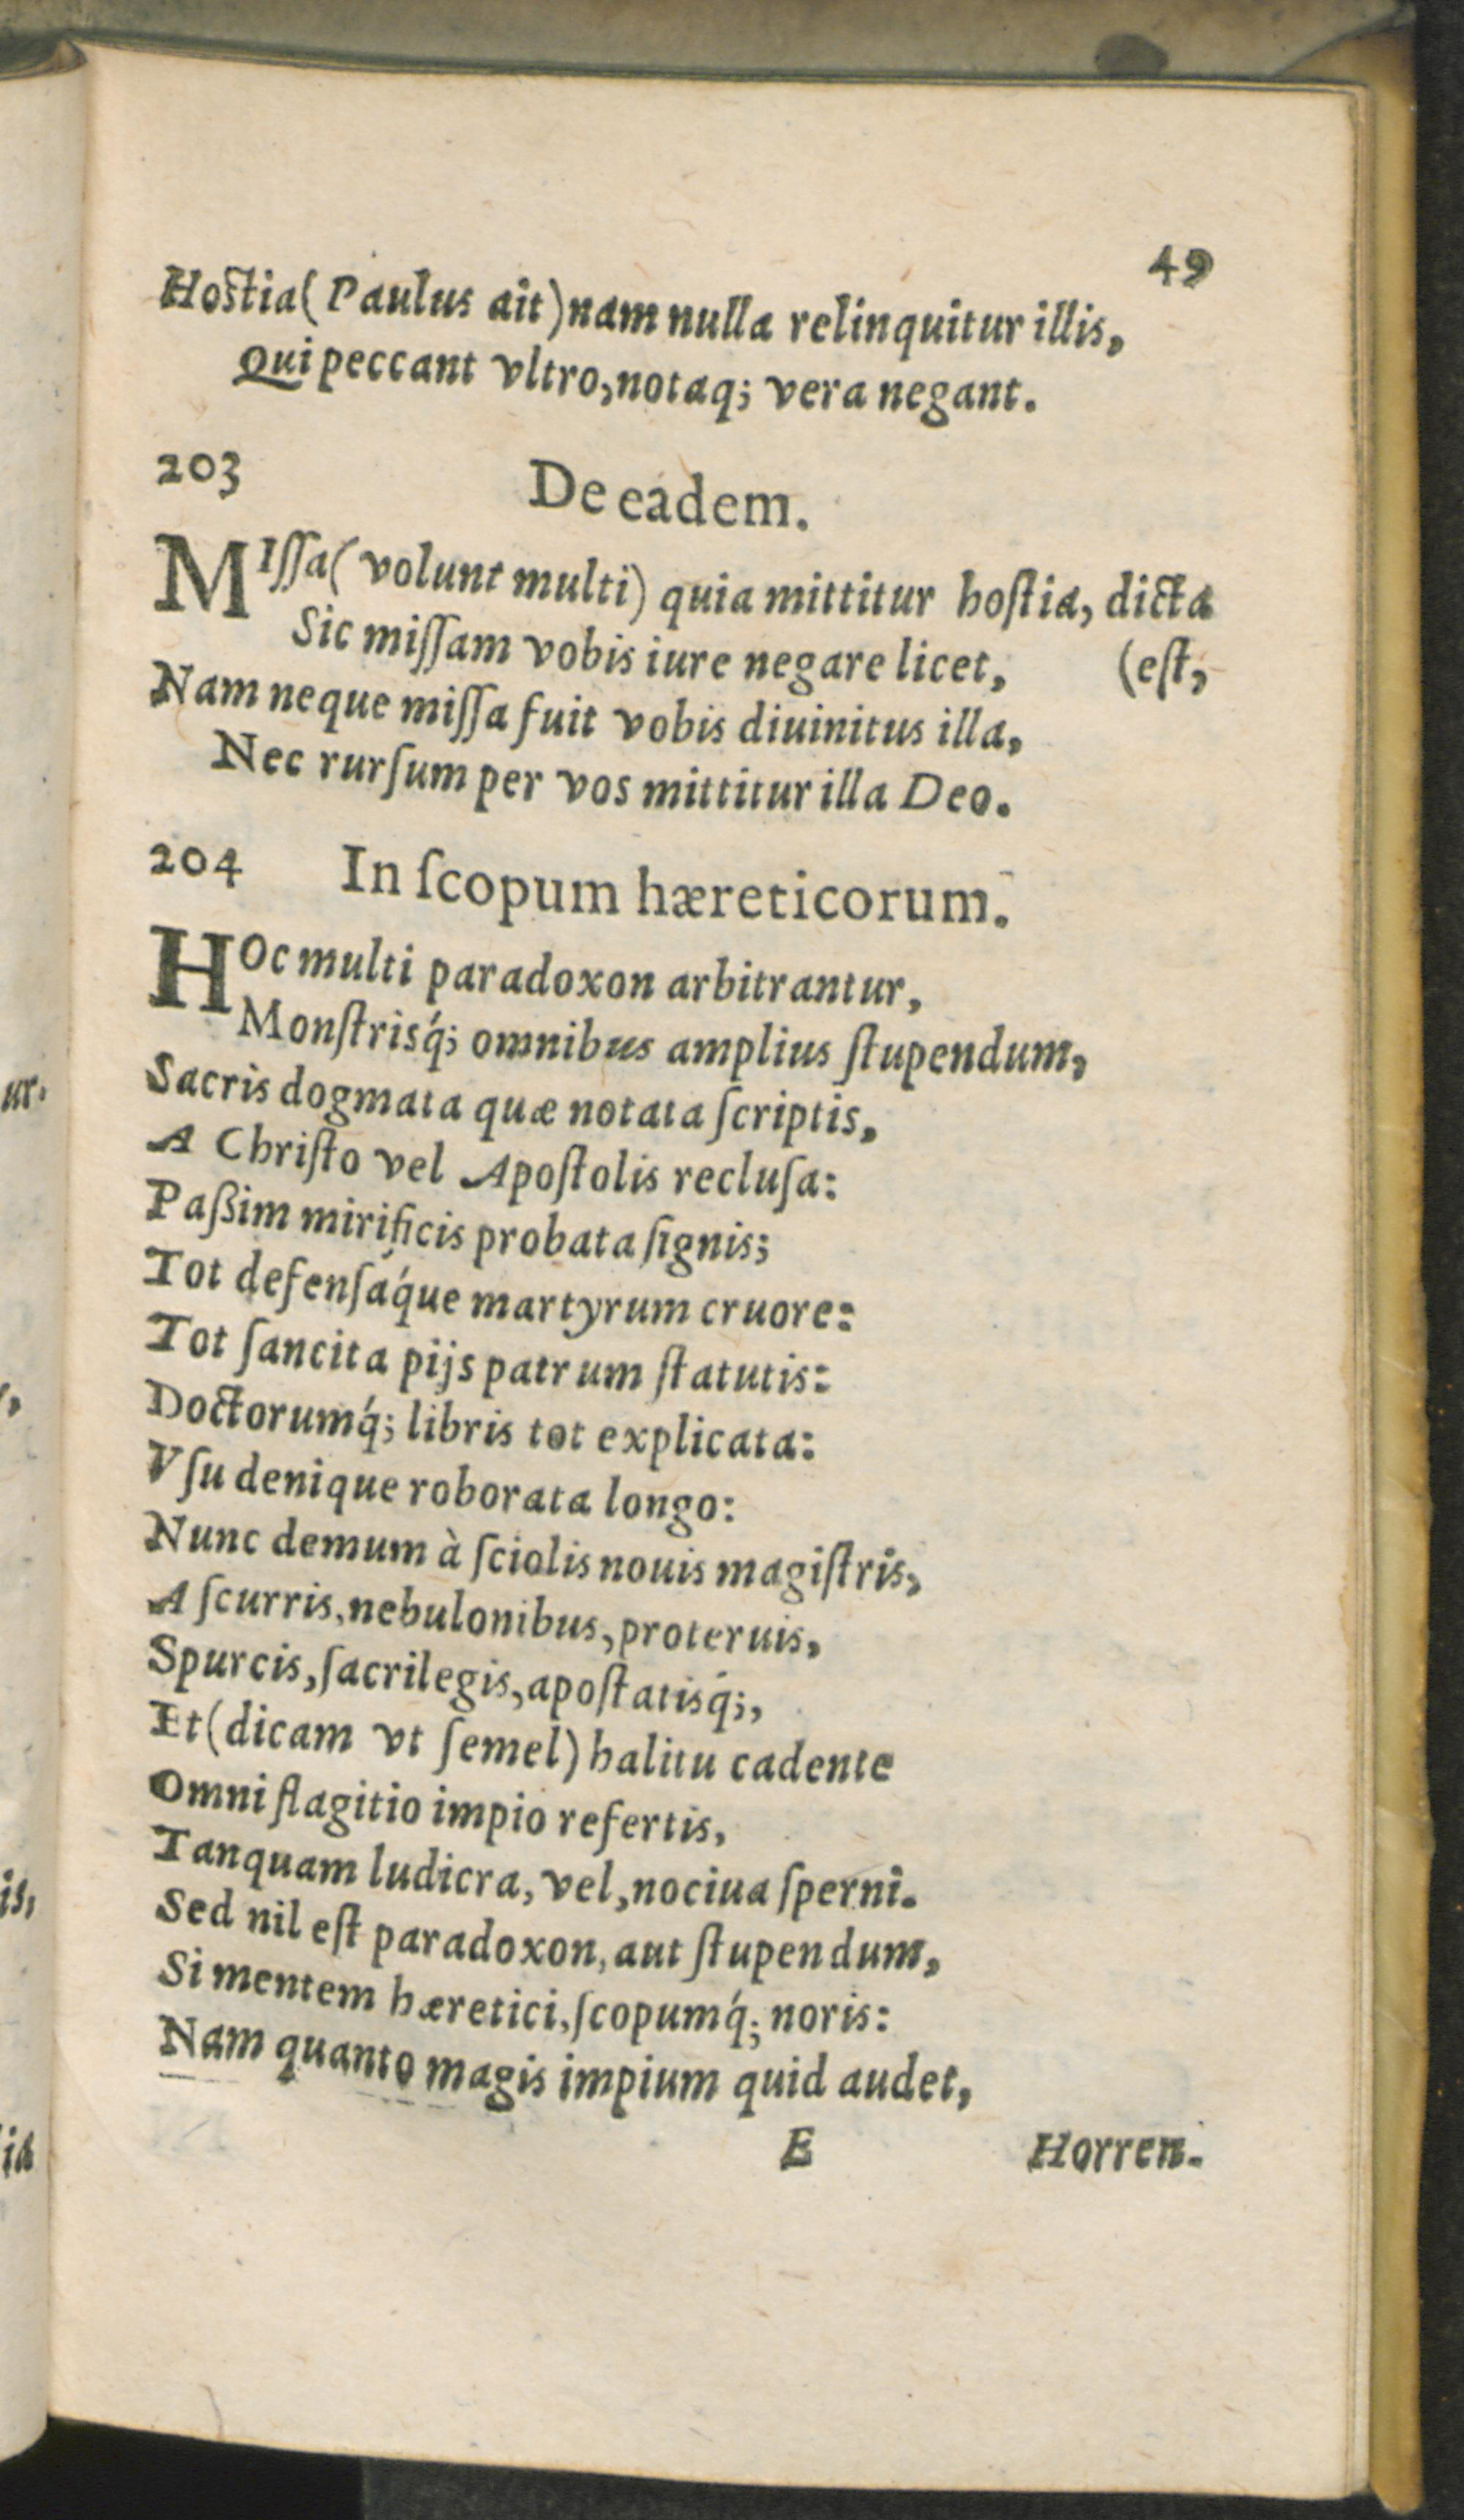 49
Hostia (Paulus ait) nam nulla relinquitur illis,
Qui peccant vltro, notaq; vera negant.
203 De eadem.
MIſſa (volunt multi) quia mittitur hoſtia, dicta
Sic miſſam vobis iure negare licet, (eſt,
Nam neque miſſa fuit vobis diuinitus illa,
Nec rurſum per vos mittitur illa Deo.
204 In ſcopum hæreticorum.
HOc multi paradoxon arbitrantur,
Monſtrisq́; omnibus amplius ſtupendum,
Sacris dogmata quæ notata ſcriptis,
A Chriſto vel Apoſtolis recluſa:
Paßim mirificis probata ſignis;
Tot defenſaq́ue martyrum cruore:
Tot ſancita pijs patrum ſtatutis:
Doctorumq́; libris tot explicata:
Vſu denique roborata longo:
Nunc demum à ſciolis nouis magiſtris,
A ſcurris, nebulonibus, proteruis,
Spurcis, ſacrilegis, apoſtatisq́;,
Et (dicam vt ſemel) halitu cadente
Omni flagitio impio refertis,
Tanquam ludicra, vel, nociua ſperni.
Sed nil eſt paradoxon, aut ſtupendum,
Si mentem hæretici, ſcopumq́; noris:
Nam quanto magis impium quid audet,
E Horren-
ur.
is,